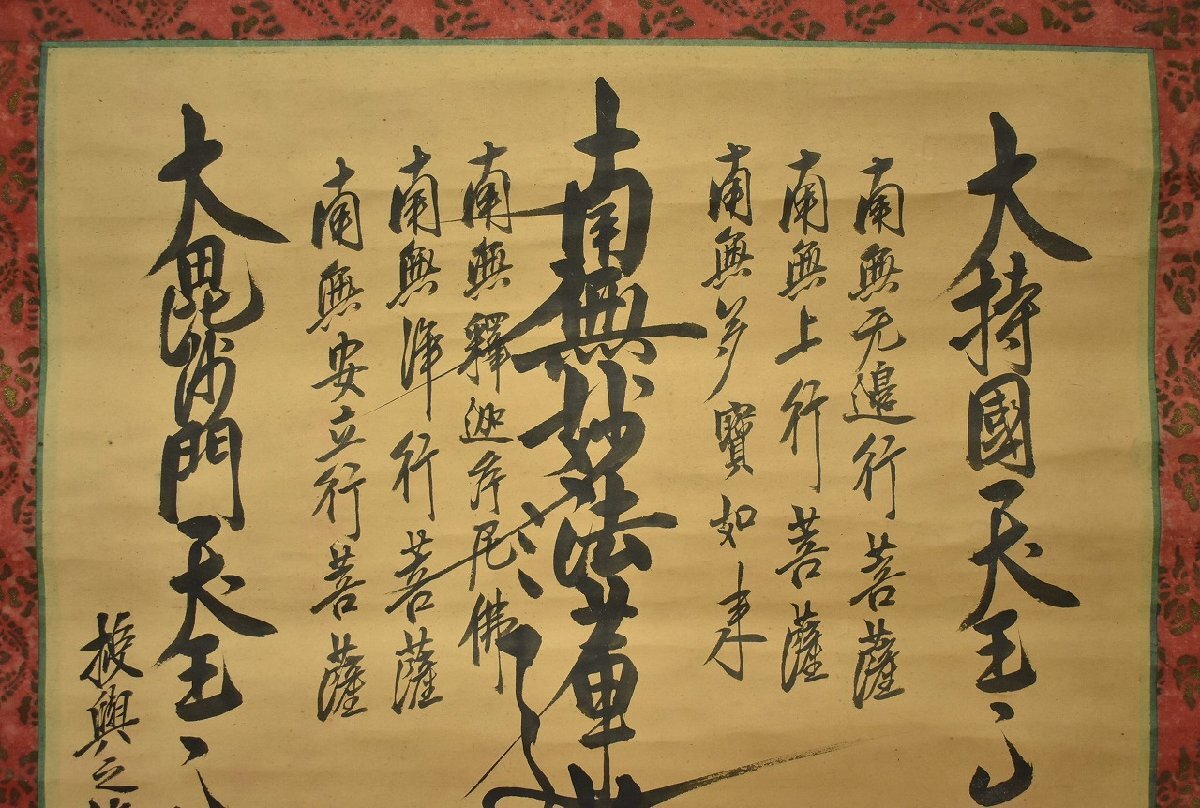 大持國天王
南無无邊行菩薩
南無上行菩薩
南無多寶如来
南無妙法蓮
南無釋迦牟尼佛
南無浄行菩薩
南無安立行菩薩
大毘沙門天王
授與之